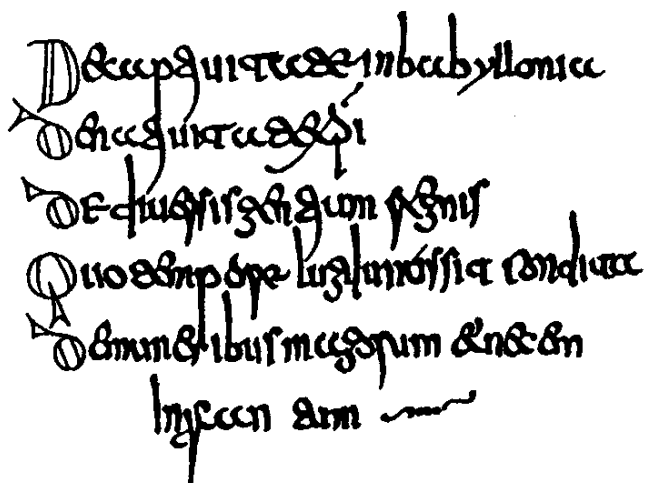 De captiuitate in babyllonia
De natiuitate xpi
De diuersis gentium regnis
Quo tempore lugdunos sit condita
De muneribus magorum et necem
infantum